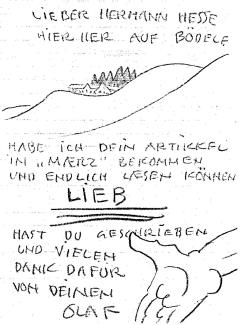 LIEBER HERMANN HESSE
HIERHER AUF BÖDELE
HABE ICH DEIN ARTIKKEL
IM „MÆRZ" BEKOMMEN
UND ENDLICH LÆSEN KÖNNEN
LIEB
HAST DU GESCHRIEBEN
UND VIELEN
DANK DAFÜR
VON DEINEM
OLAF